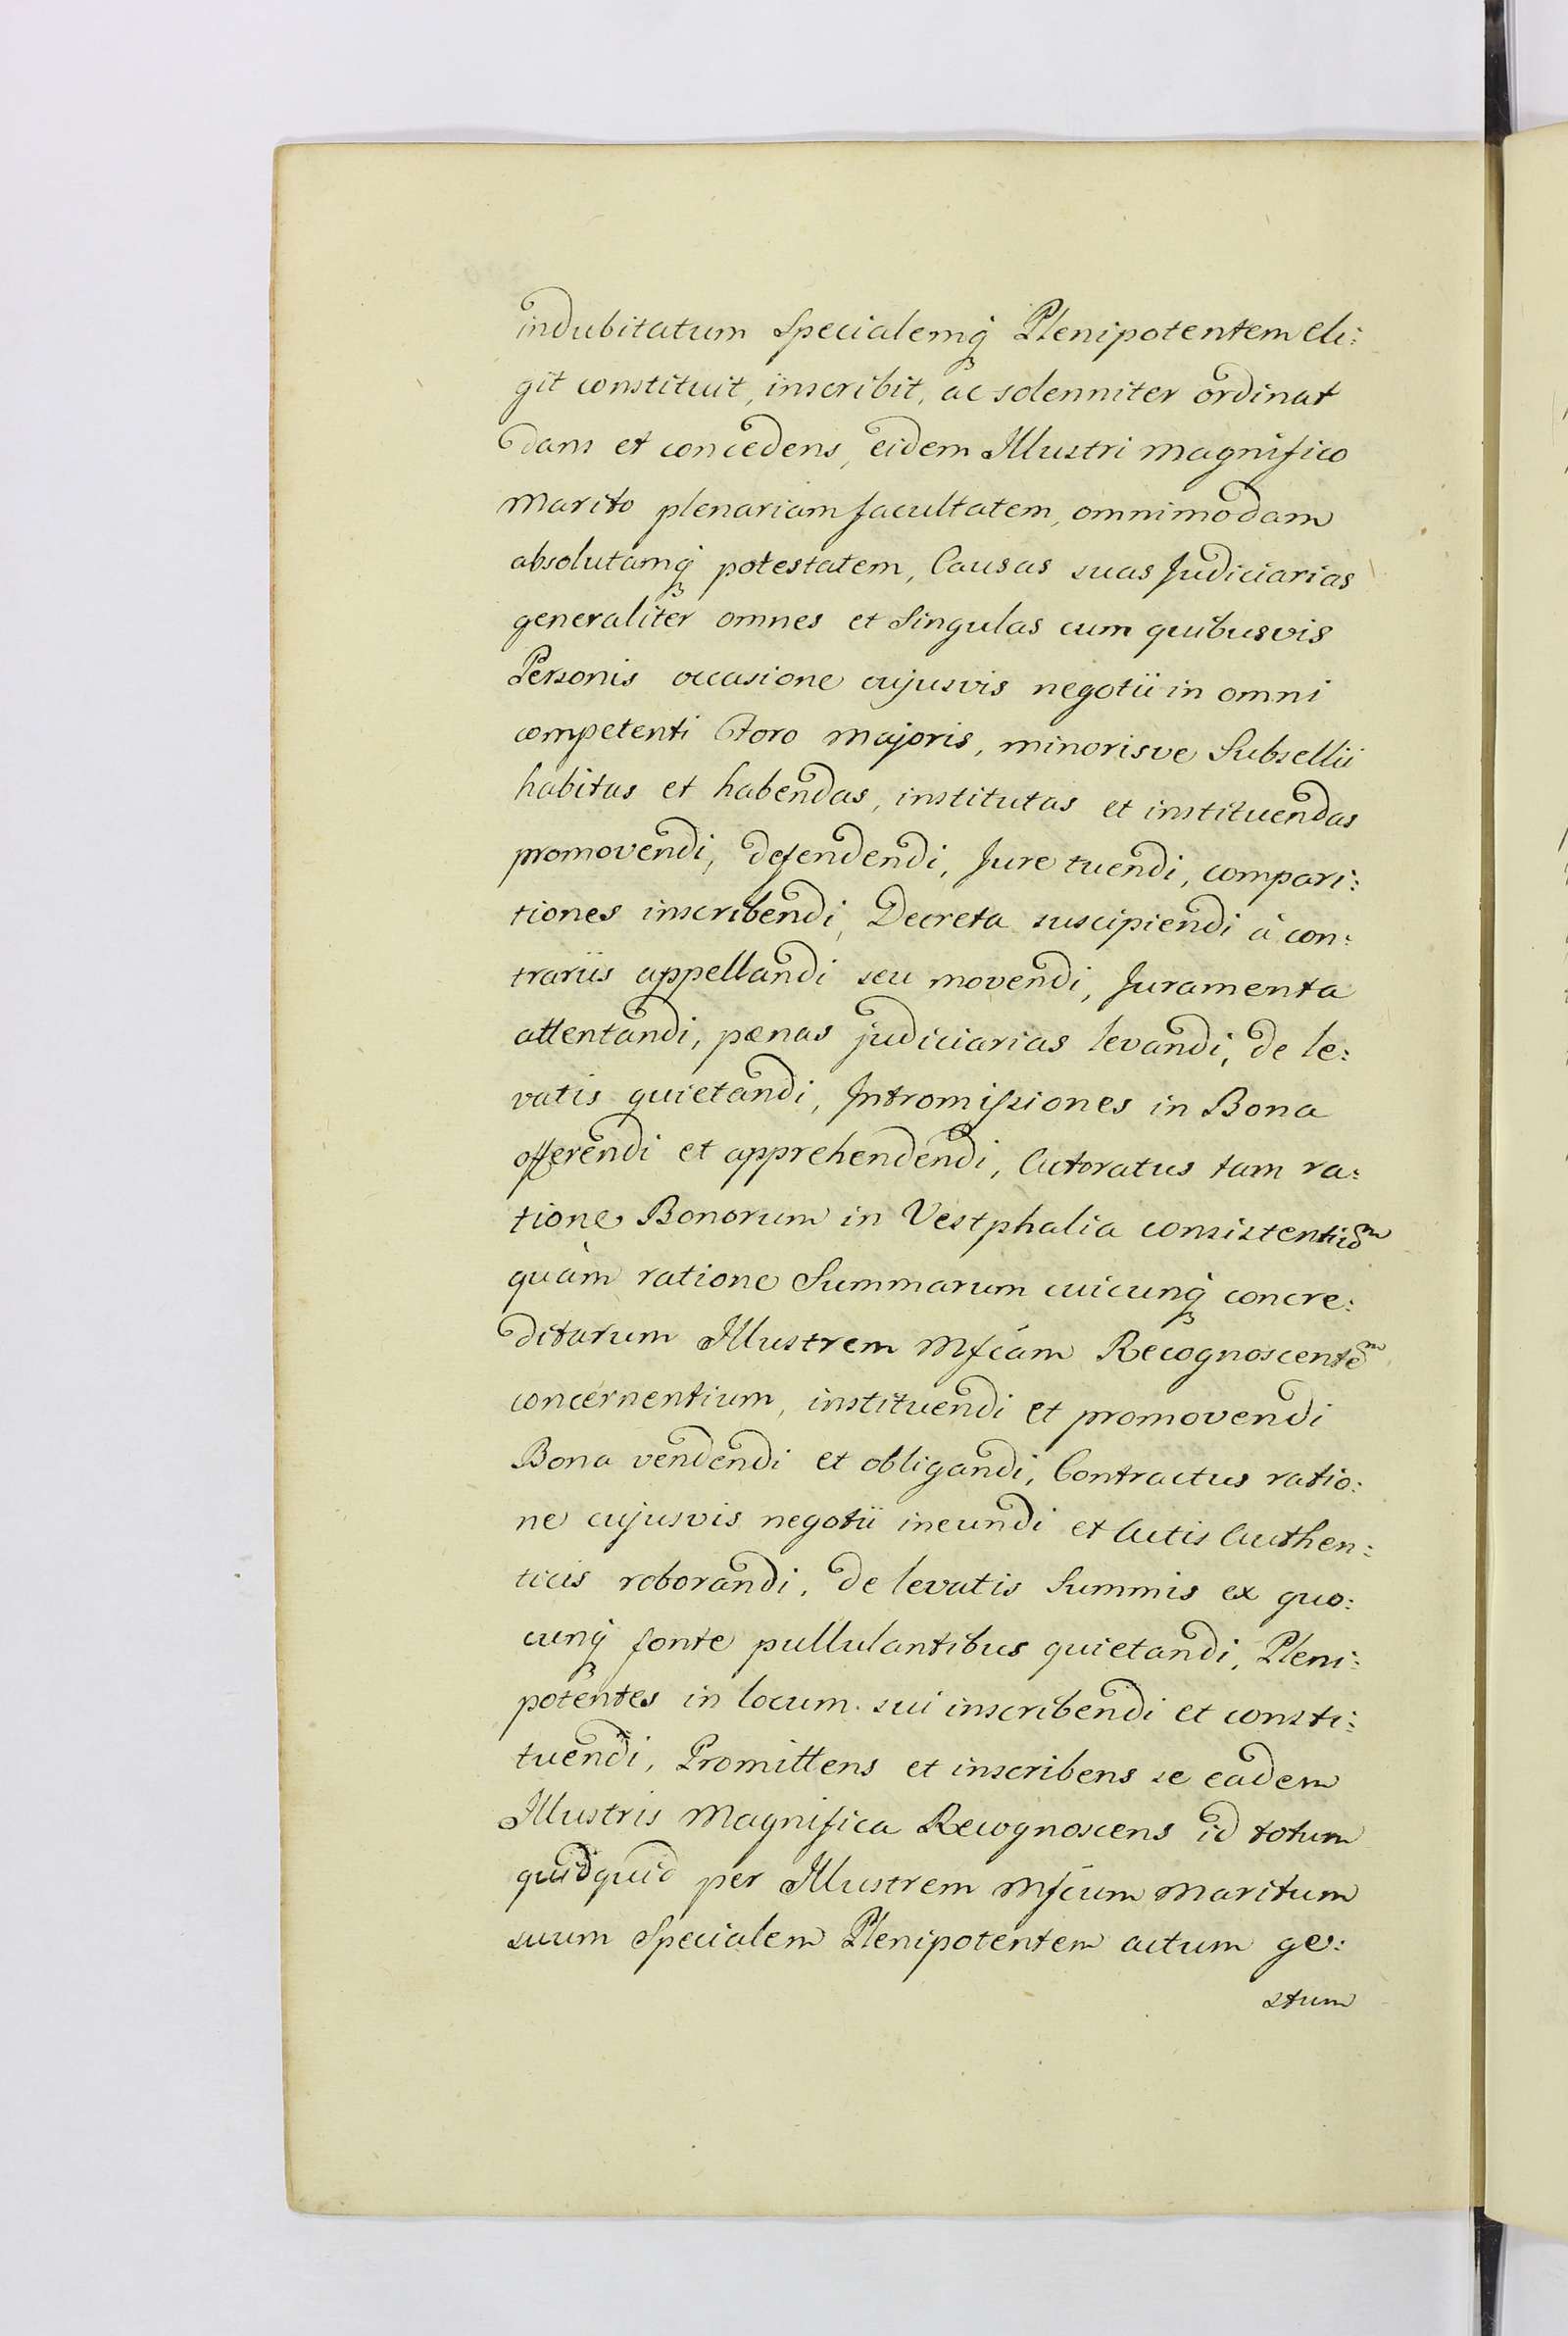 indubitatum Specialemq́ꝫ Plenipotentem eli:
git constituit, inscribit, ac solenniter ordinat
dans et concedens, eidem Illustri Magnifico
Marito plenariam facultatem, omnimodam
absolutamq́ꝫ potestatem, Causas suas Judiciarias
generaliter omnes et Singulas cum quibusvis
Personis occasione cujusvis negotii in omni
competenti Foro majoris, minorisve Subsellii
habitas et habendas, institutas et instituendas
promovendi, defendendi, Jure tuendi, compari:
tiones inscribendi, Decreta suscipiendi à con:
trariis appellandi seu movendi, Juramenta
attentandi, pænas judiciarias levandi, de le:
vatis quietandi, Intromissiones in Bona
offerendi et apprehendendi, Actoratus tam ra:
tione Bonorum in Vestphalia consistentium
quàm ratione Summarum cuicunq́ꝫ concre:
ditarum Illustrem Mfcam Recognoscentem
concernentium, instituendi et promovendi
Bona vendendi et obligandi, Contractus ratio:
ne cujusvis negotii ineundi et Actis Authen:
ticis roborandi, de levatis Summis ex quo:
cunq́ꝫ fonte pullulantibus quietandi, Pleni:
potentes in locum sui inscribendi et consti:
tuendi, Promittens et inscribens se eadem
Illustris Magnifica Recognoscens id totum
quidquid per Illustrem Mfcum Maritum
suum Specialem Plenipotentem actum ge:
stum